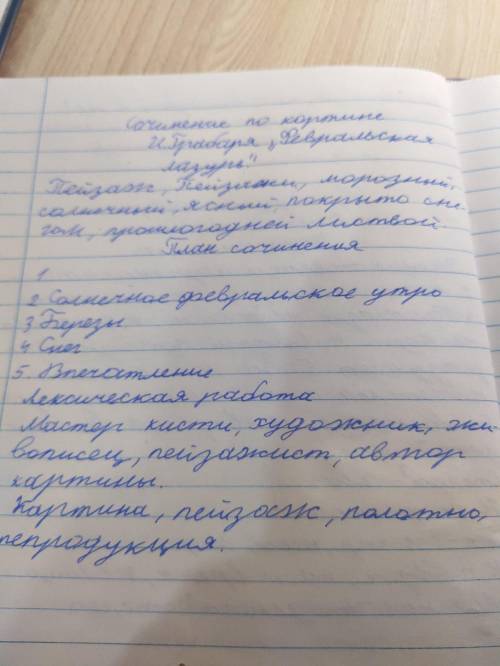 Сочинение по картине
И.Грабаря „Февральская
лазурь."
Пейзаж, Пейзажи, морозный,
солнечный, ясный, покрыто сне-
гом, прошлогодней листвой
План сочинения
1
2 Солнечное февральское утро
3 Березы
4 Снег
5. Впечатление
Лексическая работа
Мастер кисти, художник, жи-
вописец, пейзажист, автор
картины.
Картина, пейзаж, полотно,
репродукция.